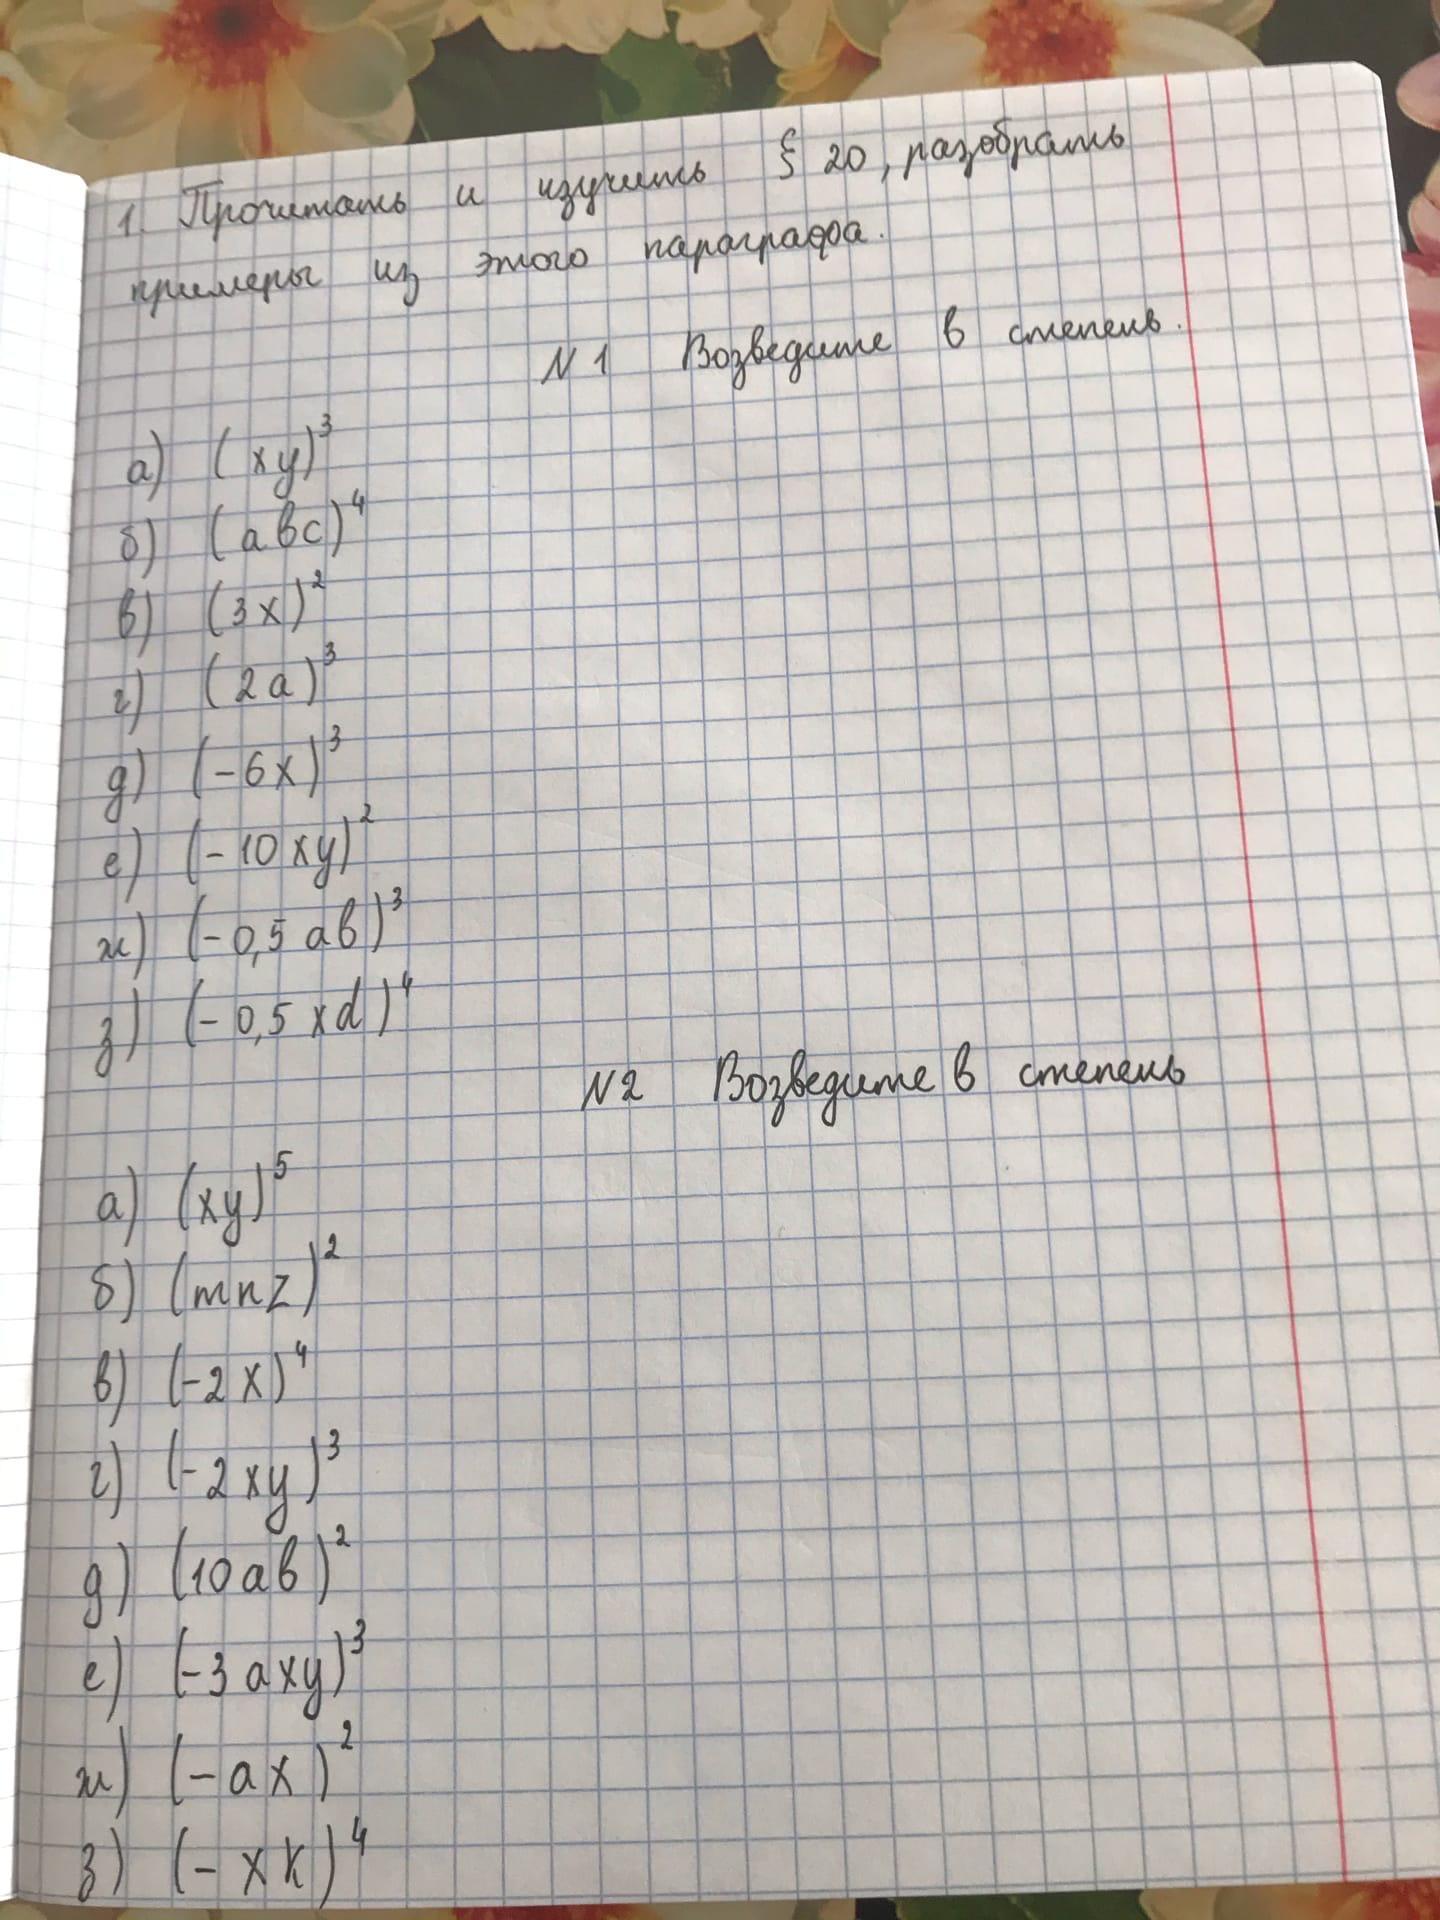 1. Прочитать и изучить § 20, разобрать
примеры из этого параграфа.
N 1 Возведите в степень.
а) (xy)³
б) (abc)⁴
в) (3x)²
г) (2a)³
д) (-6x)³
е) (-10xy)²
ж) (-0,5ab)³
з) (-0,5xd)⁴
N2 Возведите в степень
а) (xy)⁵
б) (mnz)²
в) (-2x)⁴
г) (-2xy)³
д) (10ab)²
е) (-3axy)³
ж) (-ax)²
з) (-xk)⁴